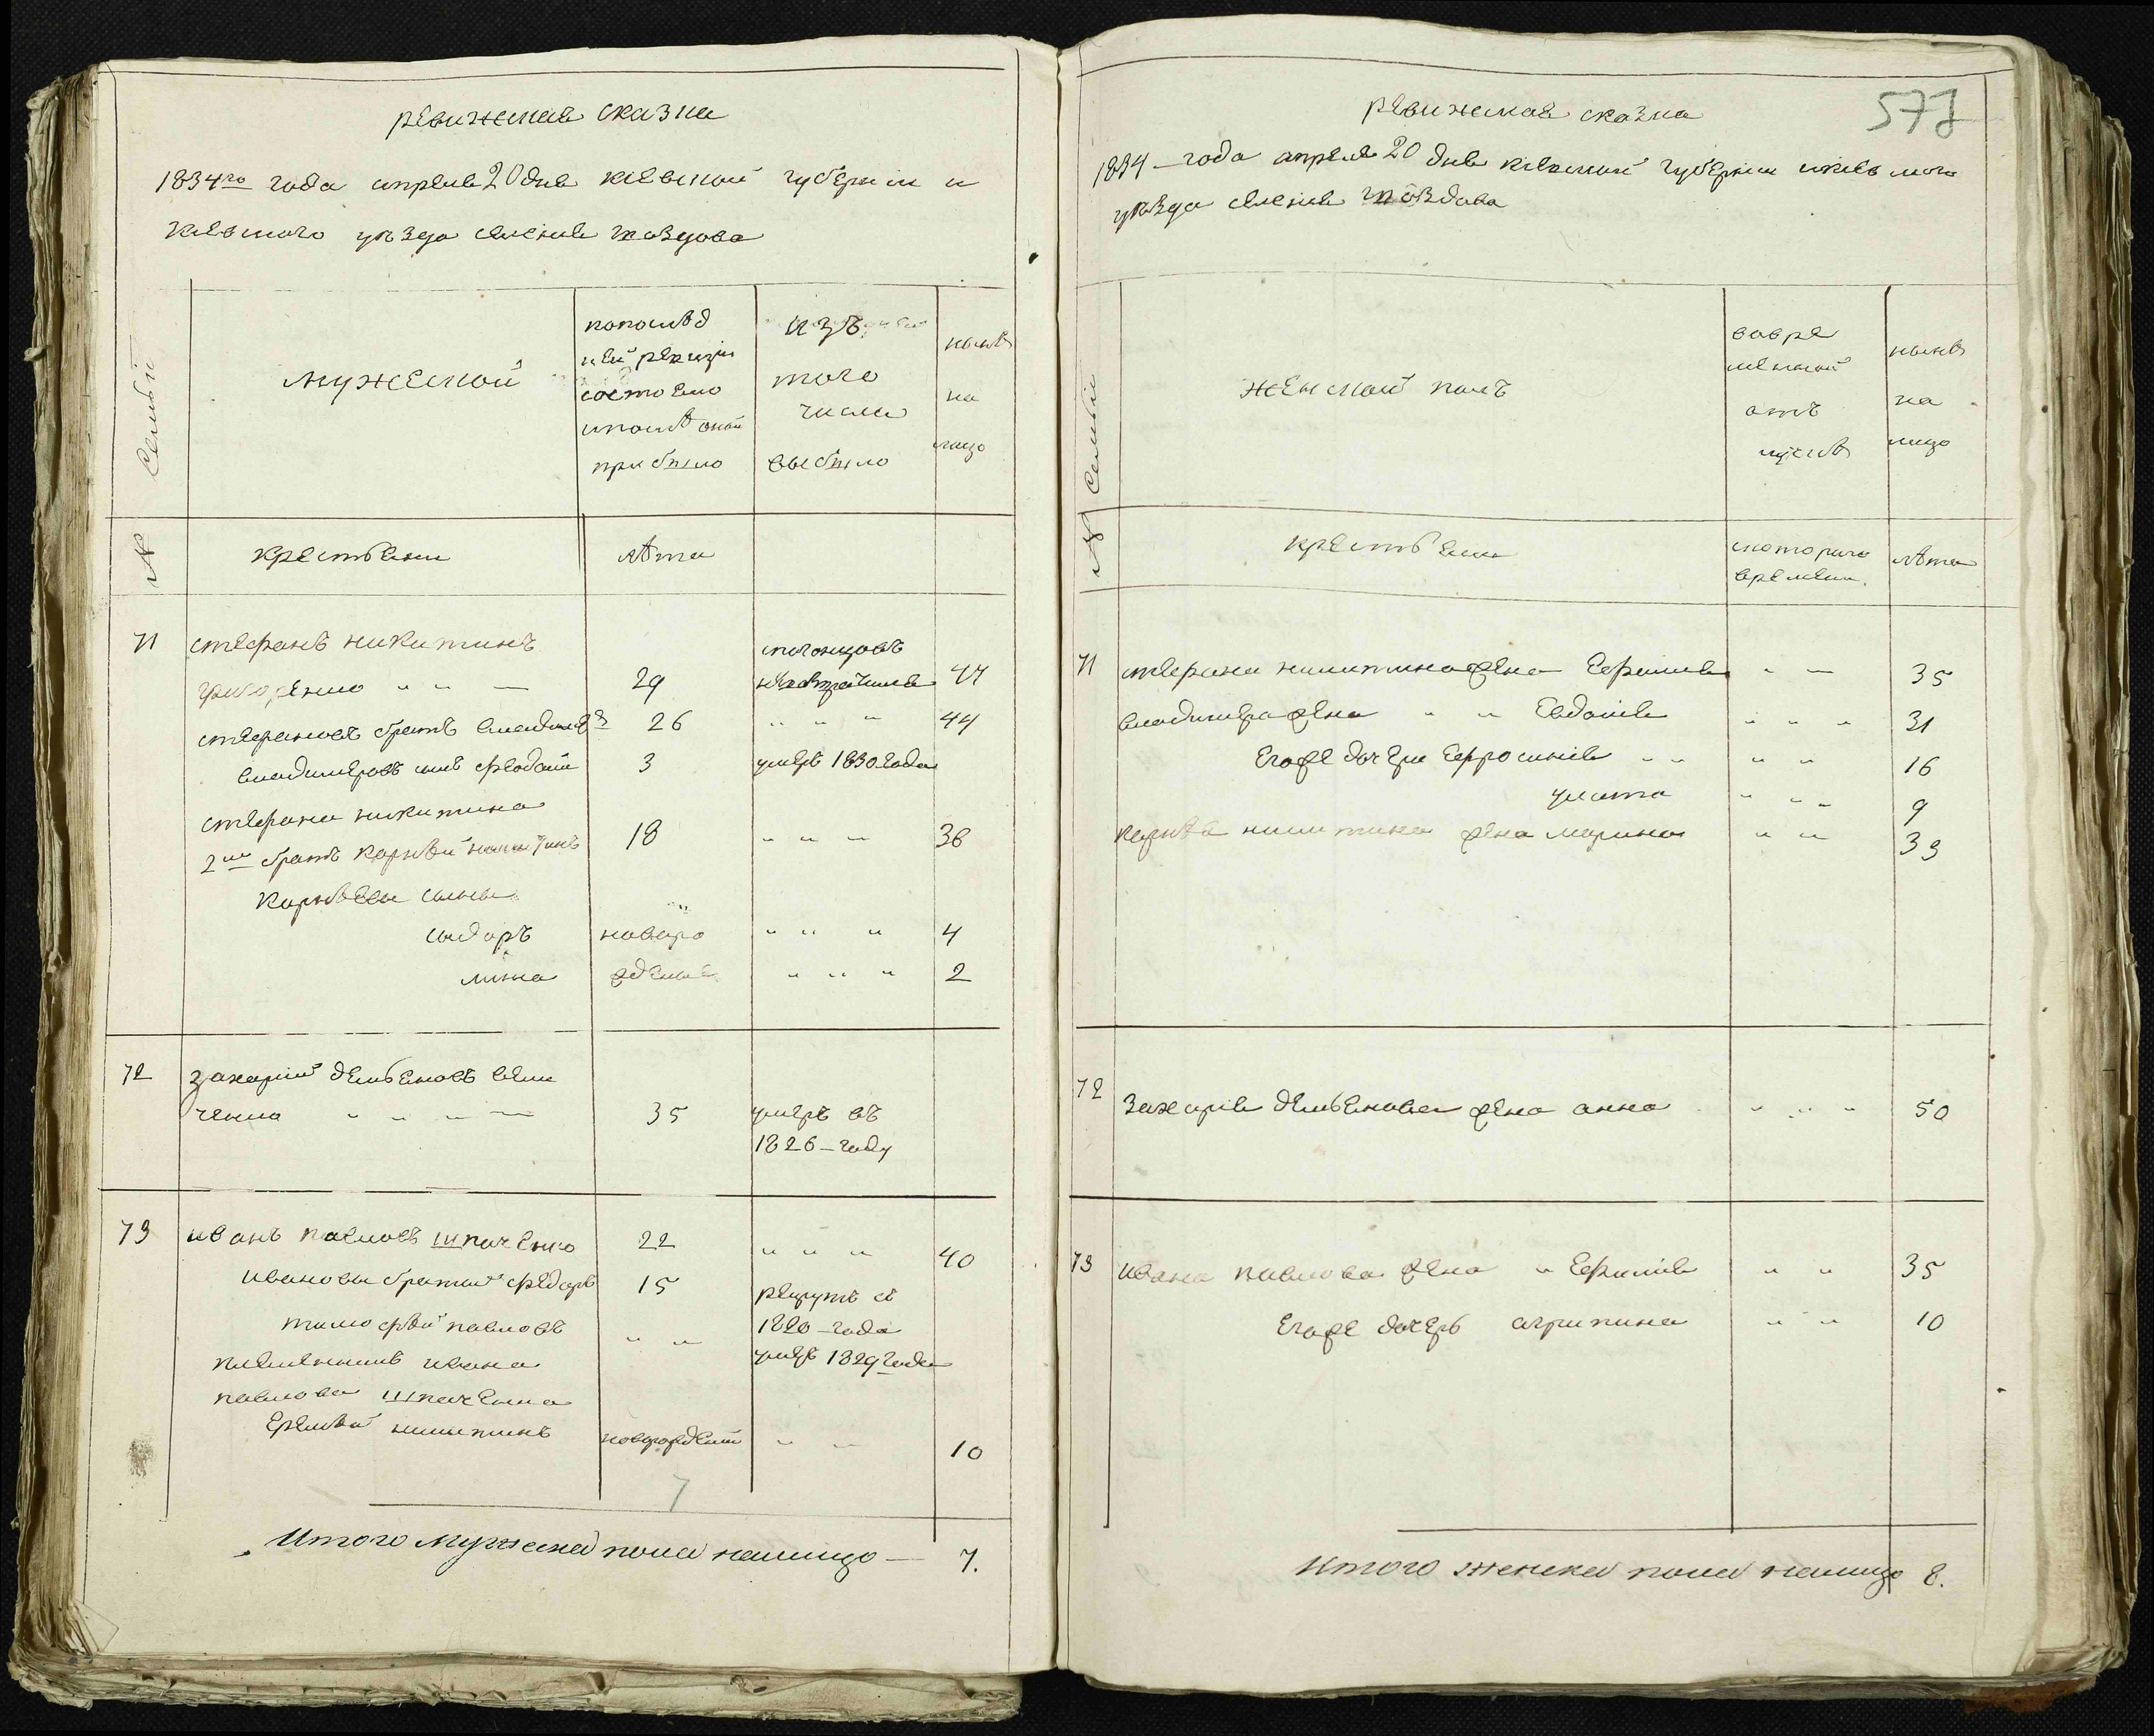 ревижская сказка
1834го года апреля 20 дня киевской губернии и
киевского уезда селение гвоздова
Семьи
мужеской
попослед
ней ревизии
состояло
ипослѣ оной
прибыло
изъ
того
числа
выбыло
нынѣ
на
лицо
№
крестьяни
лѣта
71
стефанъ никитинъ
29
44
стефановъ братъ владимеръ
26
44
владимеровъ сынъ феодосій
3
умеръ 1830 года
стефана никитина
2й братъ корнѣй никитинъ
18
36
Корнѣевы сыны
сидоръ
новоро
4
мина
жденые
2
72
захарій демьяновъ
ченко
35
умеръ въ
1826 - году
73
иванъ павловъ шпаченко
22
40
ивановы братья федоръ
15
рекрутъ съ
1820 - года
тимофѣй павловъ
умеръ 1829 года
племенникъ ивана
павлова шпаченка
еремѣй никитинъ
новорожденый
10
7
Итого мужеска пола налицо — 7.
577
ревижская сказка
1834 - года апреля 20 дня киевской губернии икиевского
уезда селение гвоздова
Семьи
женской полъ
вовре
менной
отъ
лучкѣ
нынѣ
на
лицо
№
крестьяни
скоторого
времени.
лѣта
71
стефана никитина жена Ефимия
35
владимера жена Евдокия
31
Егоже дочери Ефросиния
16
улита
9
корнѣя никитина жена марина
33
72
Захария демьянова жена анна
50
73
ивана павлова жена Ефимия
35
Егоже дочерь агрипина
10
Итого женска пола налицо 8.